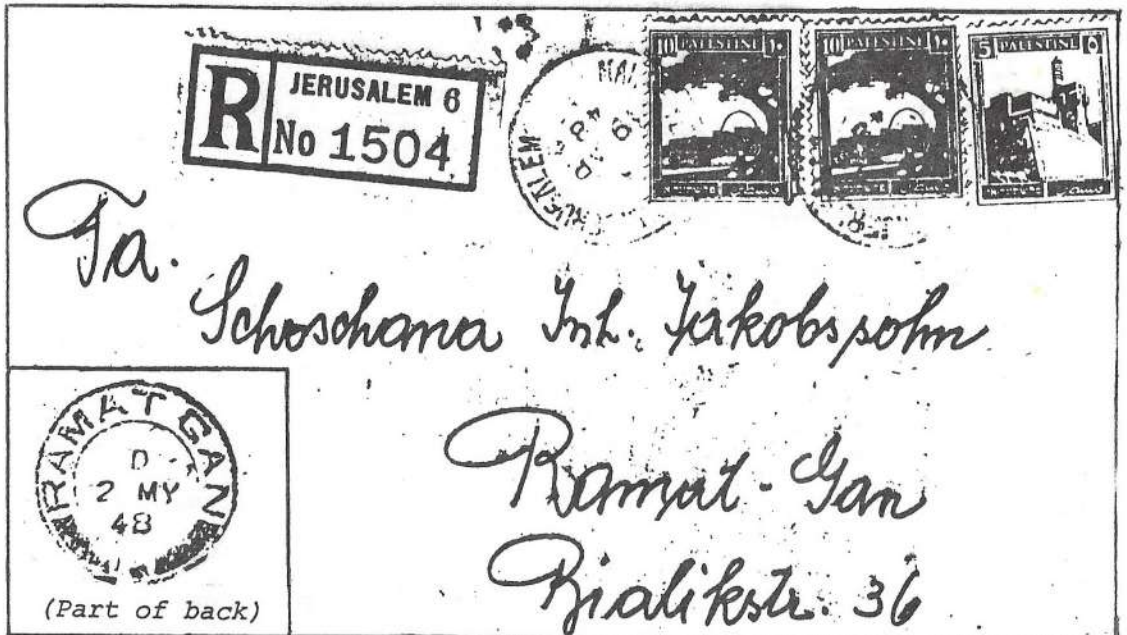 R JERUSALEM 6
No 1504
JERUSALEM
10 PALESTINE ١٠
10 PALESTINE ١٠
5 PALESTINE ٥
Fa.
Schoschana Inh. Jakobssohn
Ramat-Gan
Bialikstr. 36
RAMAT GAN
D
2 MY
48
(Part of back)